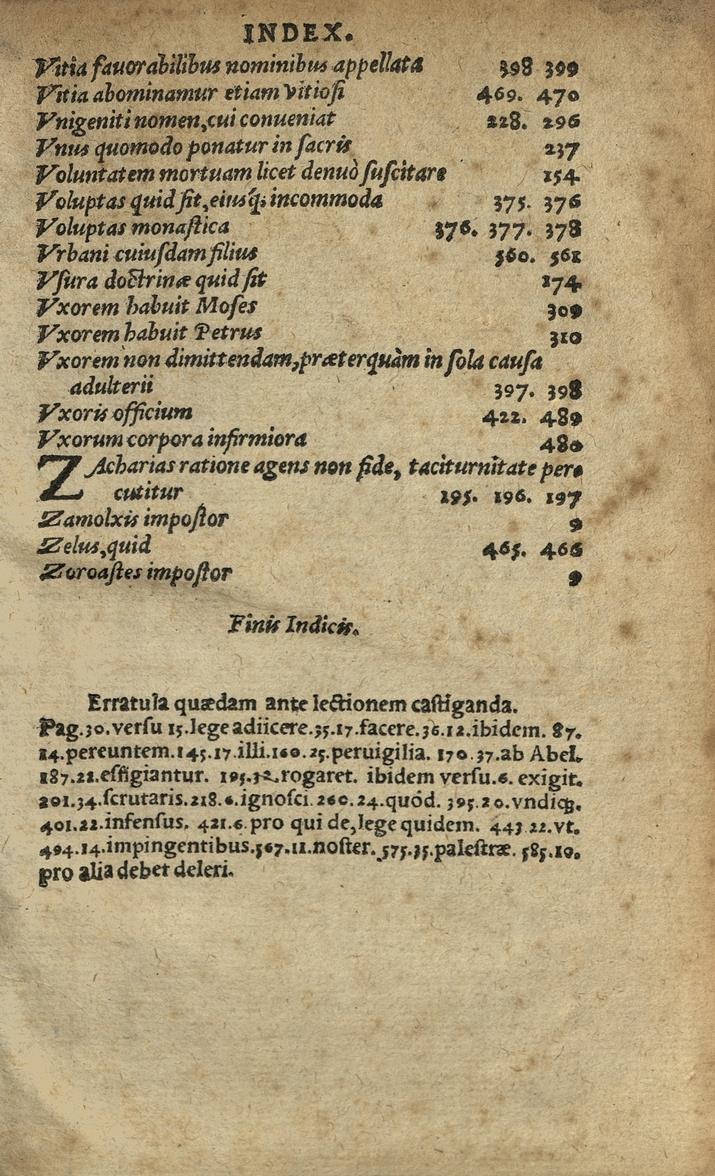 INDEX.
Vitia fauorabilibus nominibus appellata 398 399
Vitia abominamur etiam vitiosi 469. 470
Vnigeniti nomen, cui conueniat 228. 296
Vnus quomodo ponatur in sacris 237
Voluntatem mortuam licet denuò suscitare 154
Voluptas quid sit, eiusq́; incommoda 375. 376
Voluptas monastica 376. 377. 378
Vrbani cuiusdam filius 560. 561
Vsura doctrinæ quid sit 174
Vxorem habuit Moses 309
Vxorem habuit Petrus 310
Vxorem non dimittendam, præterquàm in sola causa
adulterii 397. 398
Vxoris officium 422. 489
Vxorum corpora infirmiora 480
ZAcharias ratione agens non fide, taciturnitate per-
cutitur 195. 196. 197
Zamolxis impostor 9
Zelus, quid 465. 466
Zoroastes impostor 9
Finis Indicis.
Erratula quædam ante lectionem castiganda.
Pag. 30. versu 15. lege adiicere. 35. 17. facere. 36. 12. ibidem. 87.
14. pereuntem. 145. 17. illi. 160. 25. peruigilia. 170. 37. ab Abel.
187. 22. effigiantur. 195. 32. rogaret. ibidem versu. 6. exigit.
201. 34. scrutaris. 218. 6. ignosci. 260. 24. quòd. 395. 20. vndiq;.
401. 22. infensus. 421. 6. pro qui de, lege quidem. 443 22. vt.
494. 14. impingentibus. 567. 11. noster. 575. 35. palestræ. 585. 10.
pro alia debet deleri.